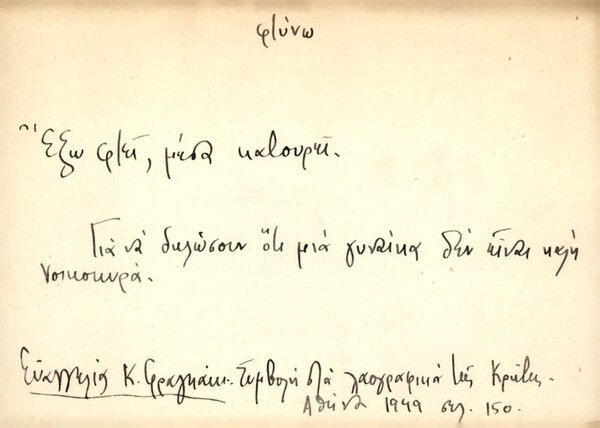 φτύνω
Ἔξω φτεῖ, μέσα κατουρεῖ.
Γιὰ νὰ δηλώσουν ὅτι μιὰ γυναίκα δὲν εἶναι καλὴ
νοικοκυρά.
Εὐαγγελία Κ. Φραγκάκι. Συμβολὴ στὰ λαογραφικὰ τῆς Κρήτης.
Ἀθήνα 1949 σελ. 150.